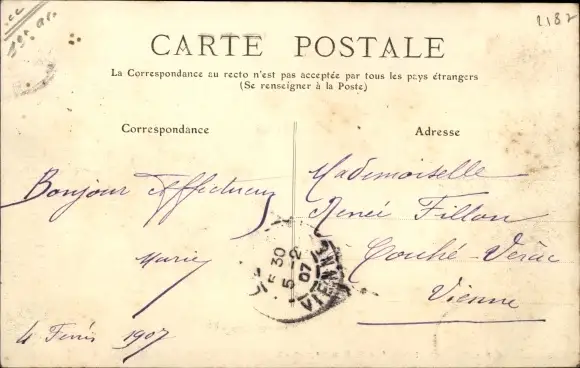 2182
CARTE POSTALE
La Correspondance au recto n'est pas acceptée par tous les pays étrangers
(Se renseigner à la Poste)
Correspondance
Adresse
Bonjour Affectueux
Marie
4 1907
Mademoiselle
Renée Fillon
Couhé-Vérac
Vienne
30
5 - 2
07
VIENNE